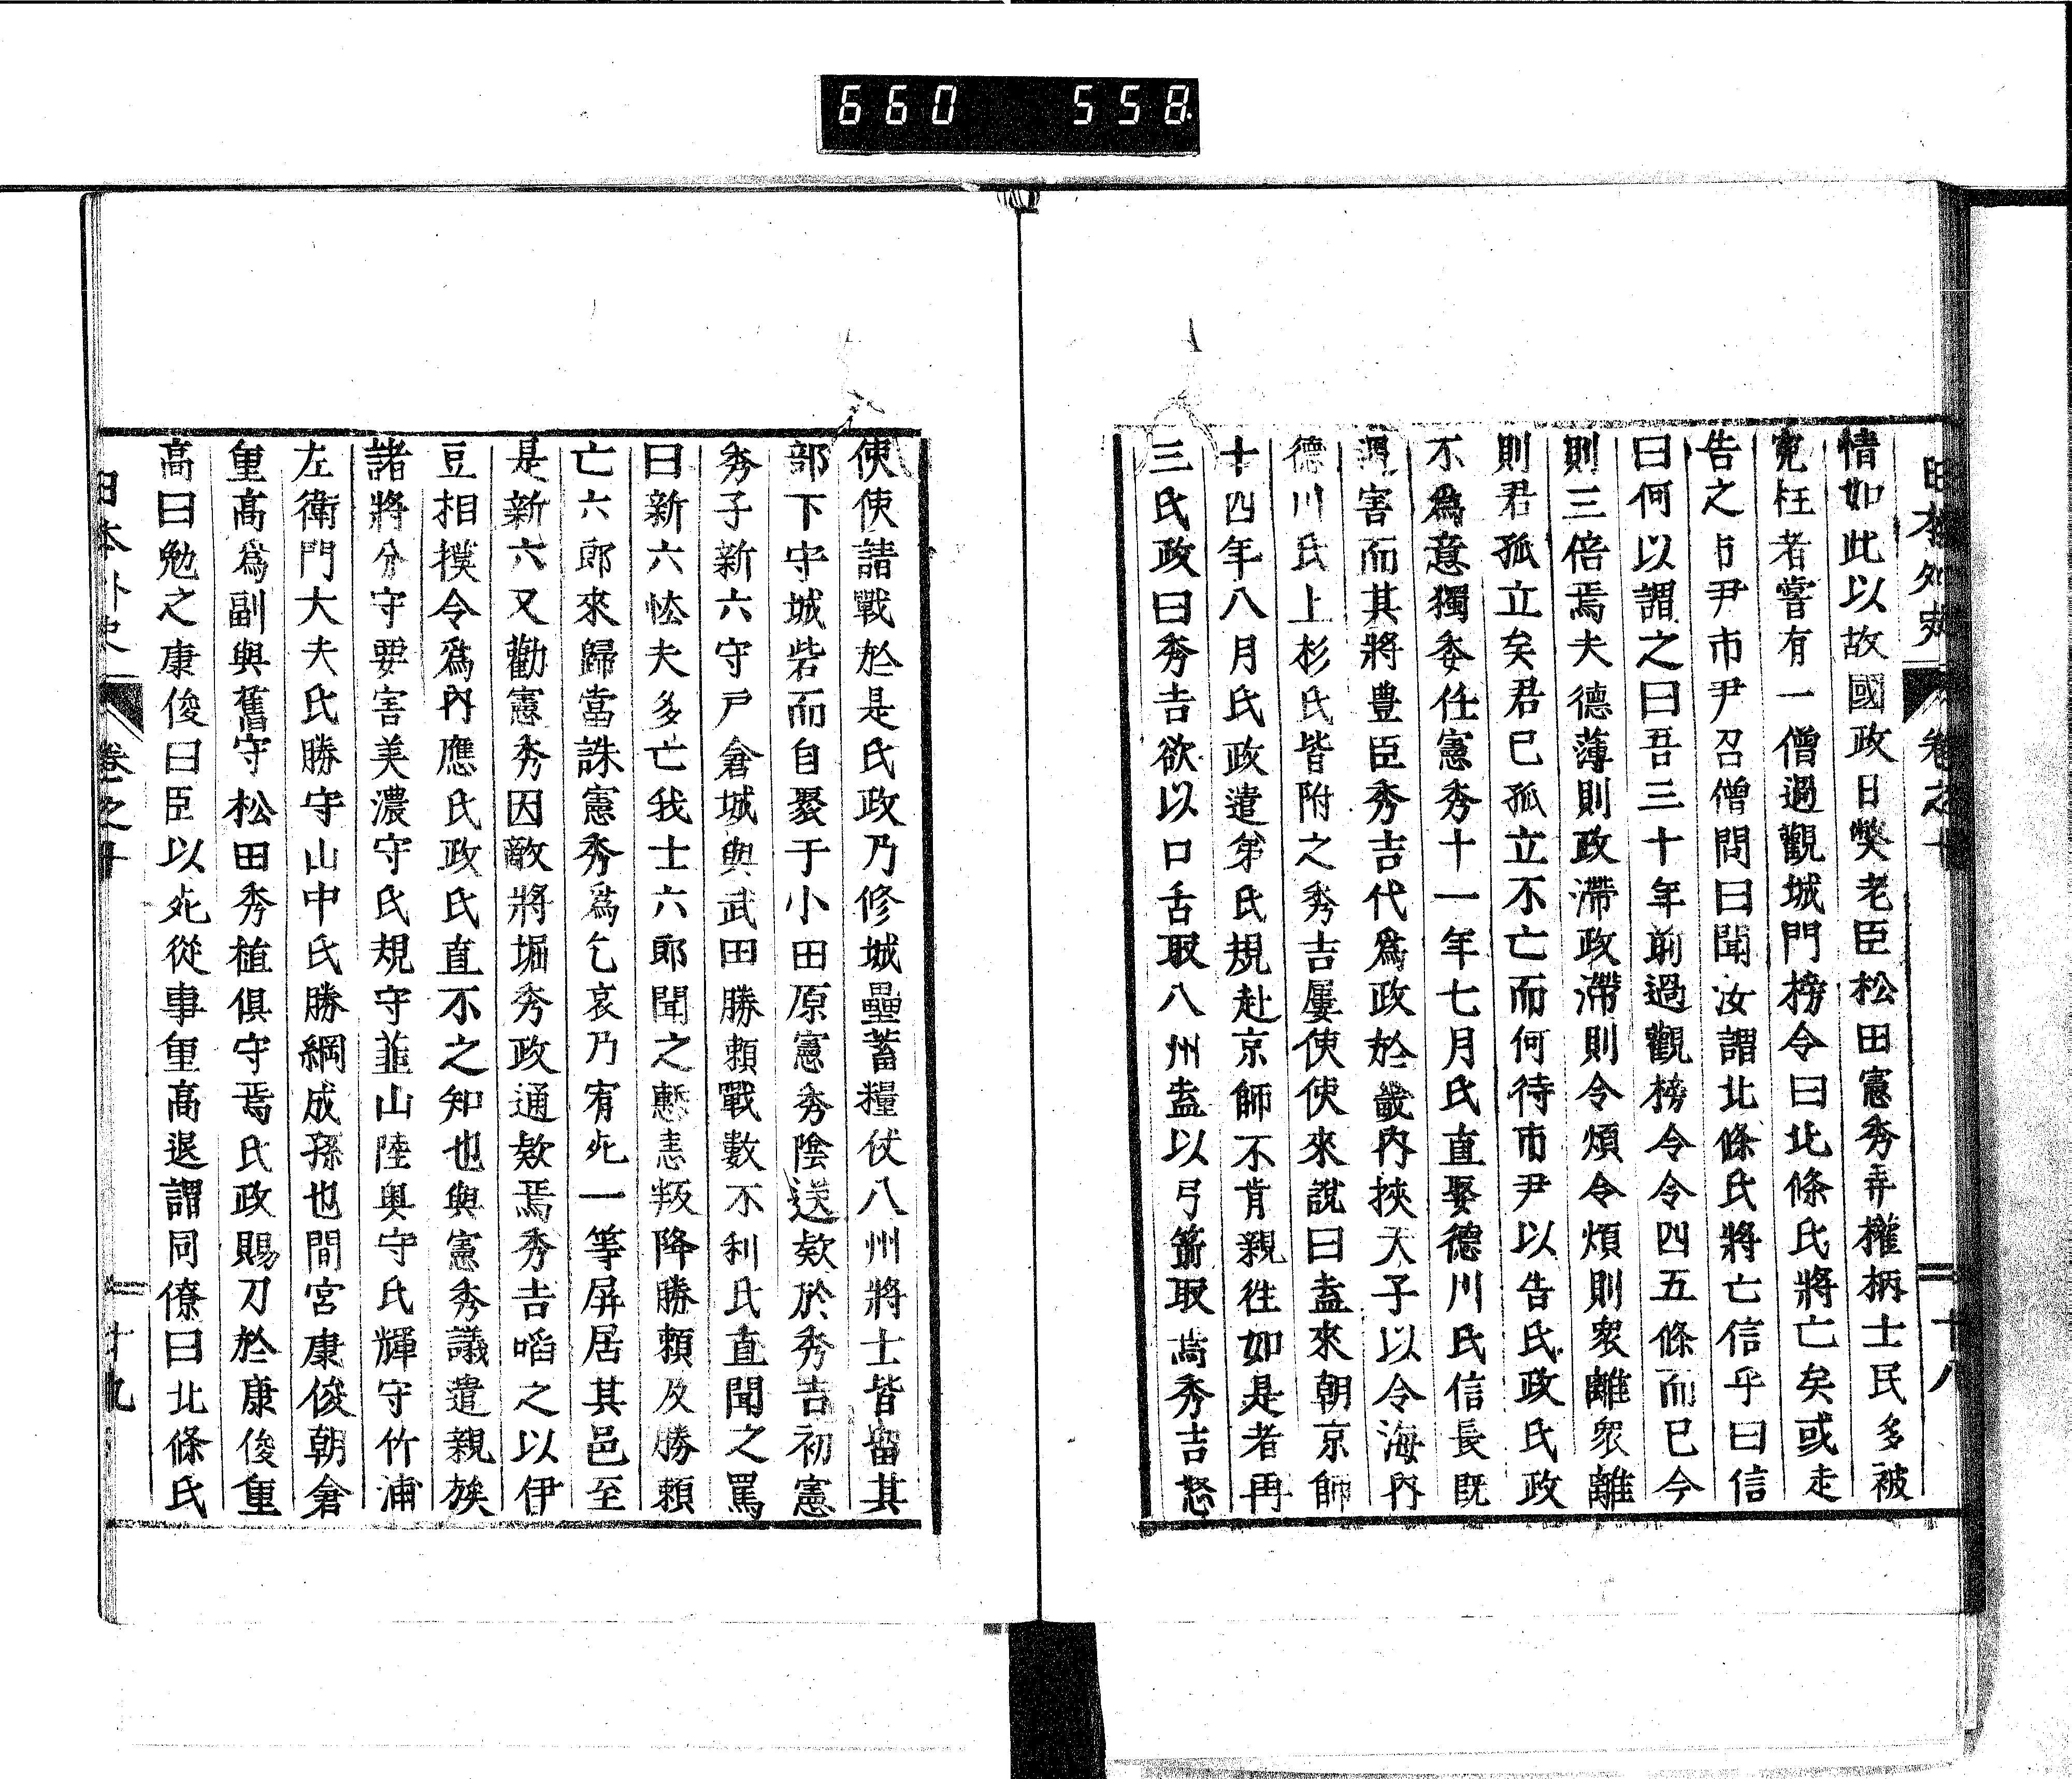 660 558
日本外史 卷之十 十八
情如此以故國政日弊老臣松田憲秀弄權柄士民多被
冤枉者嘗有一僧過觀城門榜令曰北條氏將亡矣或走
告之市尹市尹召僧問曰聞汝謂北條氏將亡信乎曰信
曰何以謂之曰吾三十年前過觀榜令令四五條而已今
則三倍焉夫德薄則政滯政滯則令煩令煩則衆離衆離
則君孤立矣君已孤立不亡而何待市尹以告氏政氏政
不爲意獨委任憲秀十一年七月氏直娶德川氏信長既
遇害而其將豊臣秀吉代爲政於畿內挾天子以令海內
德川氏上杉氏皆附之秀吉屢使使來說曰盍來朝京師
十四年八月氏政遣弟氏規赴京師不肯親往如是者再
三氏政曰秀吉欲以口舌取八州盍以弓箭取焉秀吉怒
使使請戰於是氏政乃修城壘蓄糧仗八州將士皆留其
部下守城砦而自聚于小田原憲秀陰送款於秀吉初憲
秀子新六守戶倉城與武田勝賴戰數不利氏直聞之罵
曰新六怯夫多亡我士六郎聞之慙恚叛降勝賴及勝賴
亡六郎來歸當誅憲秀爲乞哀乃宥死一等屏居其邑至
是新六又勸憲秀因敵將堀秀政通款焉秀吉啗之以伊
豆相模令爲內應氏政氏直不之知也與憲秀議遣親族
諸將分守要害美濃守氏規守韮山陸奥守氏輝守竹浦
左衛門大夫氏勝守山中氏勝綱成孫也間宮康俊朝倉
重高爲副與舊守松田秀植俱守焉氏政賜刀於康俊重
高曰勉之康俊曰臣以死從事重高退謂同僚曰北條氏
日本外史 卷之十 十九